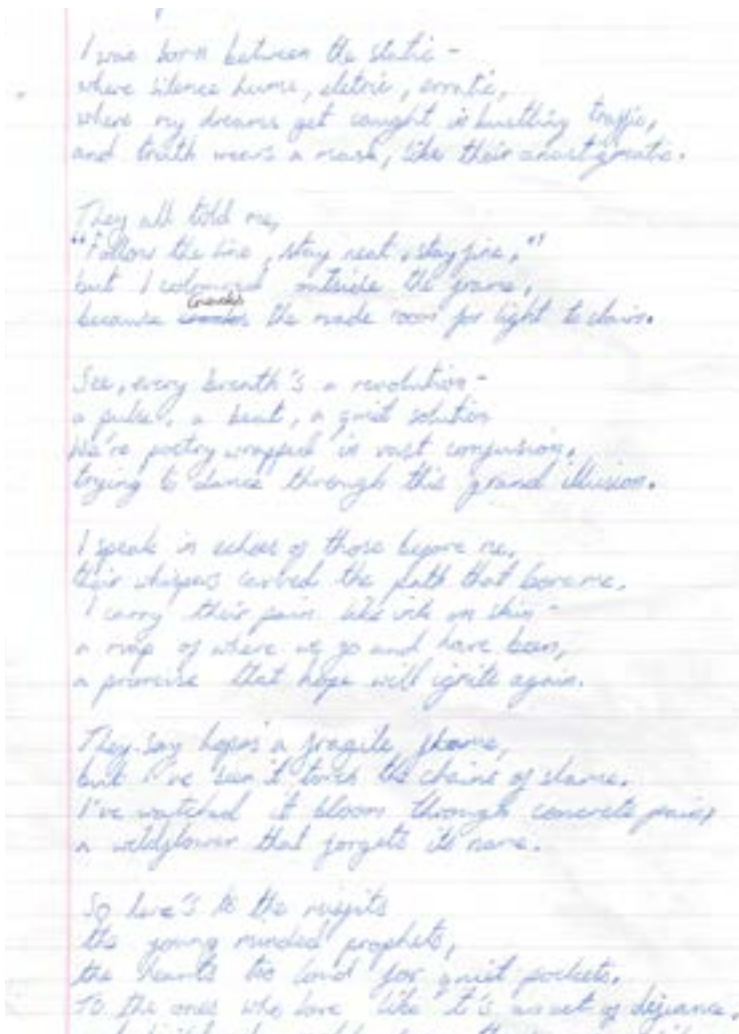 I was born between the static -
where silence hums, eletric, erratic,
where my dreams get caught in bustling traffic,
and truth wears a mask, like their
They all told me,
"Follow the line, stay neat, stay fine,"
but I coloured outside the frame,
because the made room for light to claim.
See, every breath's a revolution -
a pulse, a beat, a quiet solution
We're poetry wrapped in vast confusion,
trying to dance through this grand illusion.
I speak in echoes of those before me,
their whispers carved the path that bore me.
I carry their pain like ink on skin -
a map of where we go and have been,
a promise that hope will ignite again.
They say hopes a fragile flame,
but I've seen it torch the chains of shame.
I've watched it bloom through concrete pain,
a wildflower that forgets its name.
So here's to the misfits
the young minded prophets,
the hearts too loud for quiet pockets.
To the ones who love like it's an act of defiance.